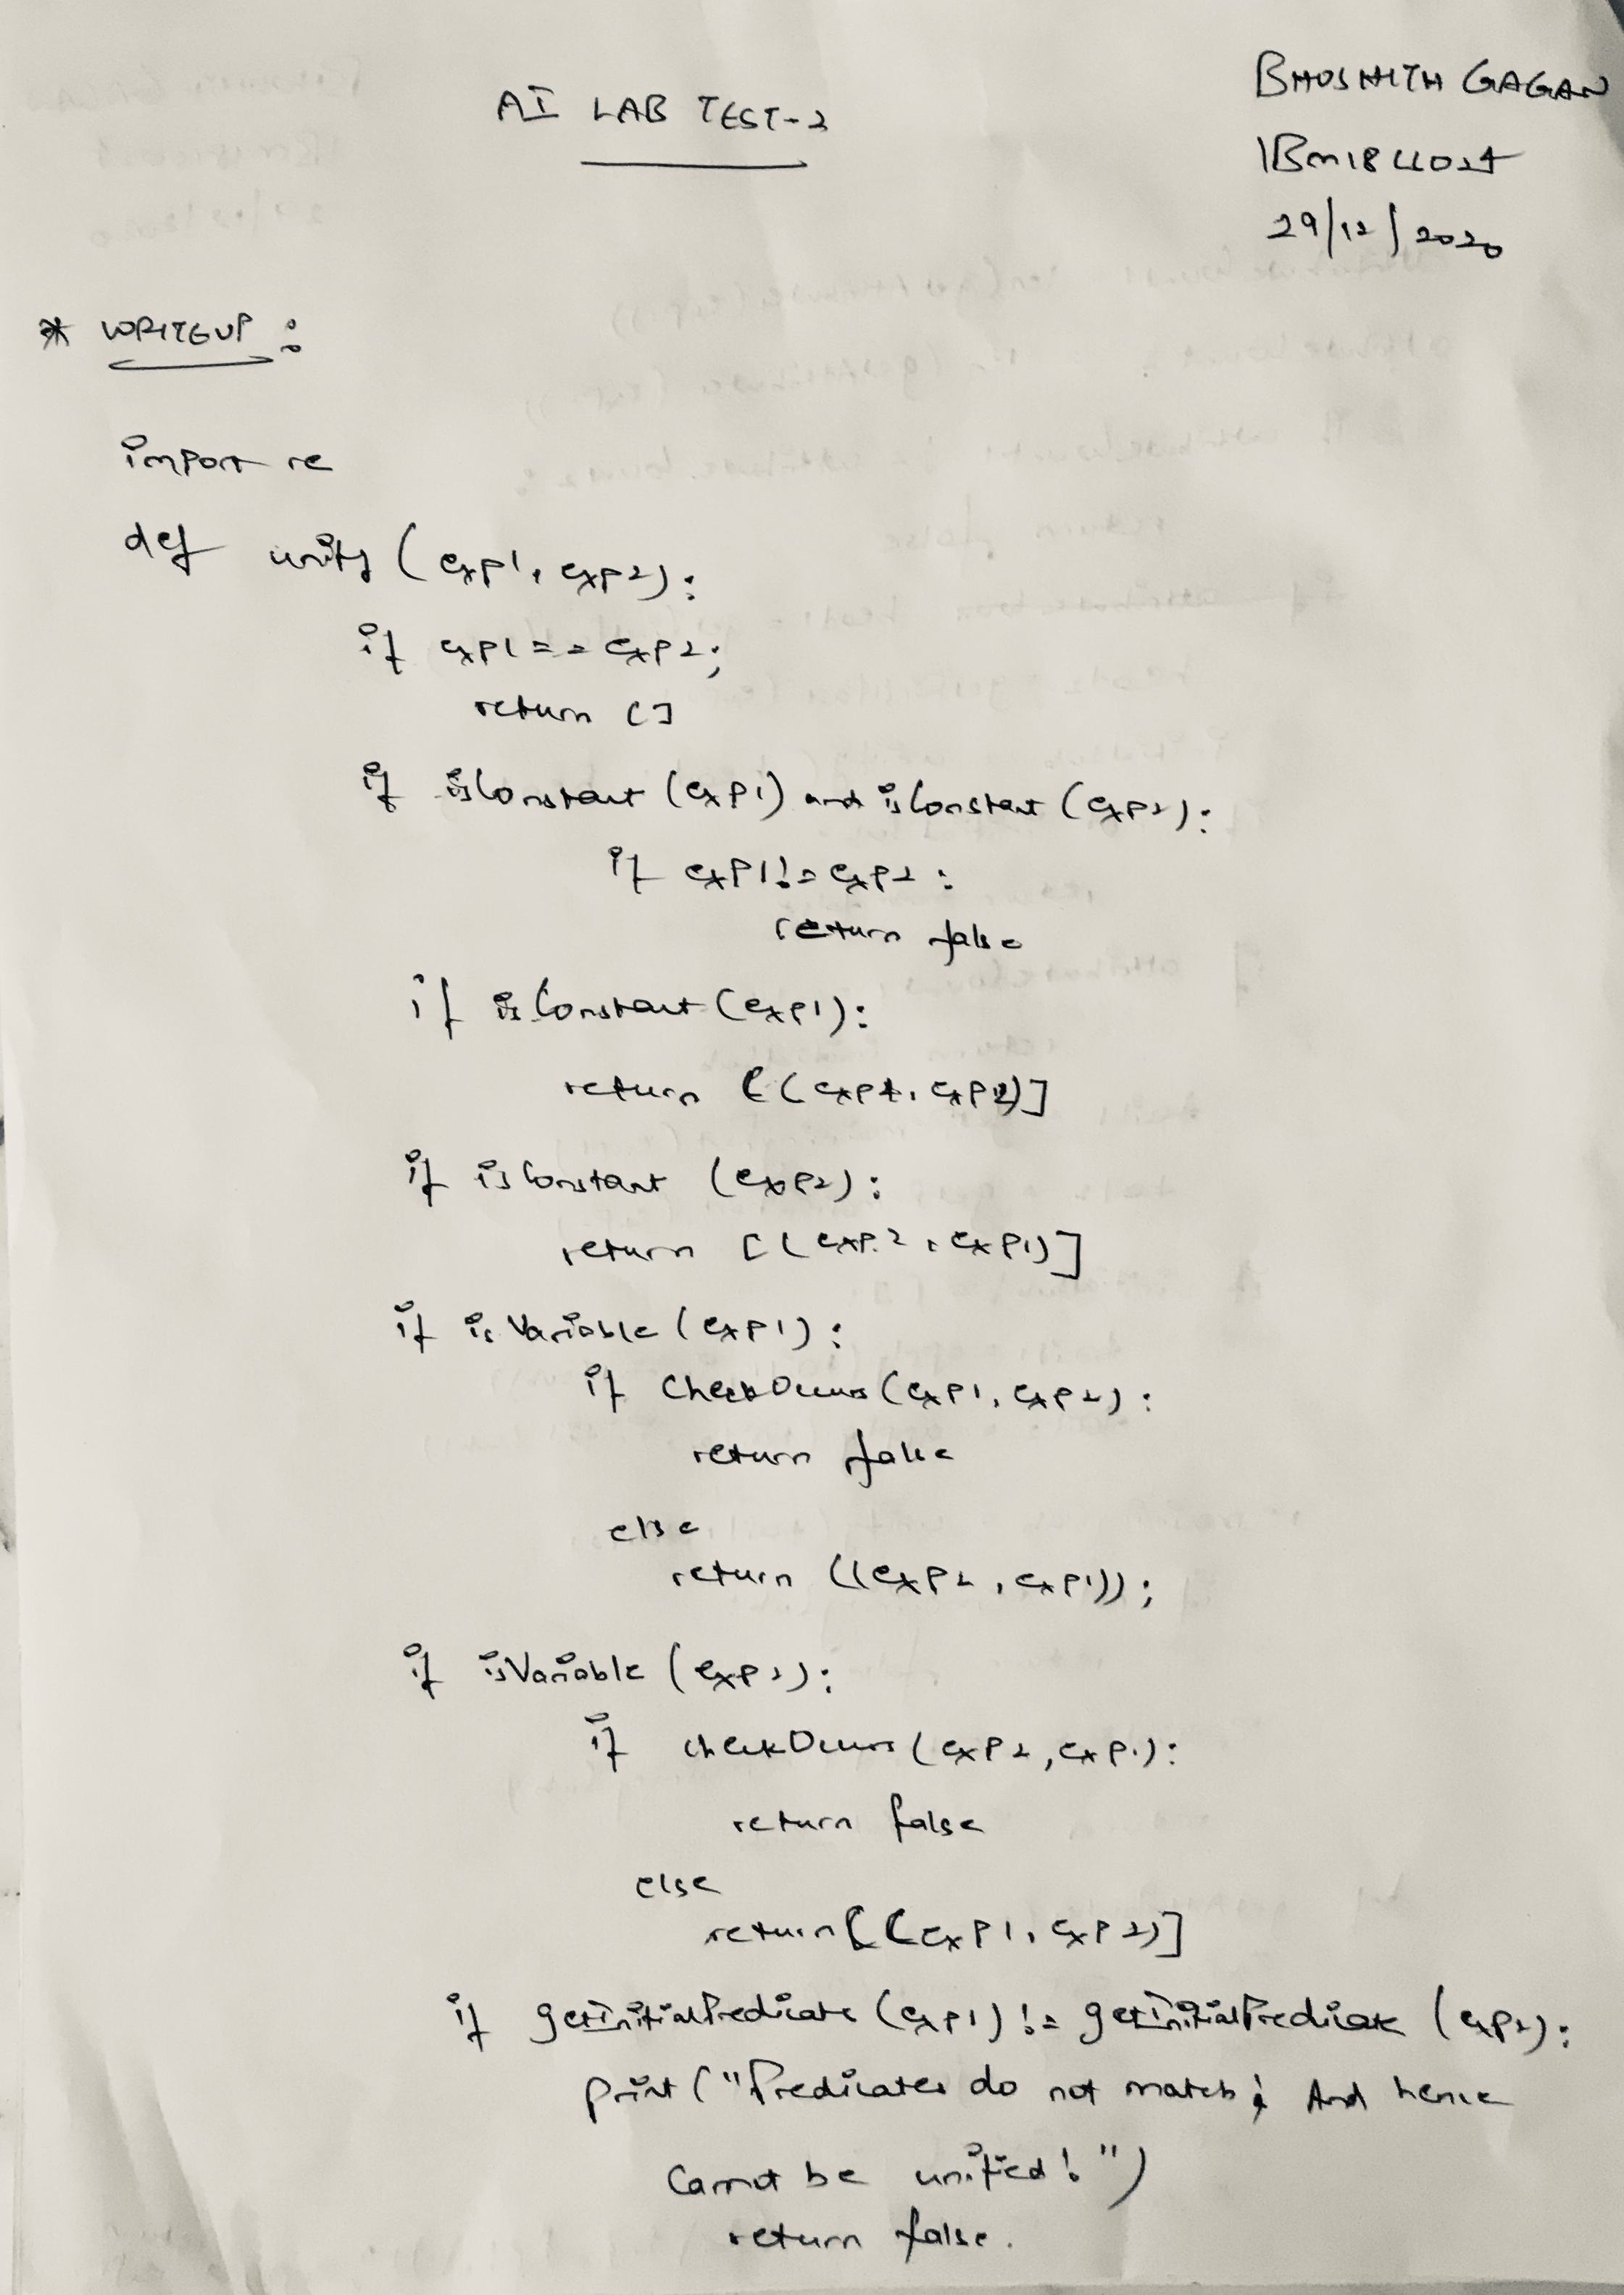 AI LAB TEST-2
BHOSHITH GAGAN
29/12/2020
* WRITEUP :
import re
def unify (exp1, exp2):
if exp1 == exp2;
return []
if isConstant (exp1) and isConstant (exp2):
if exp1 != exp2 :
return false
if isConstant (exp1):
return [(exp1, exp2)]
if isConstant (exp2):
return [(exp2, exp1)]
if isVariable (exp1):
if CheckOccurs (exp1, exp2) :
return false
else
return ((exp2, exp1));
if isVariable (exp2):
if checkOccurs (exp2, exp1):
return false
else
return [(exp1, exp2)]
if getInitialPredicate (exp1) != getInitialPredicate (exp2):
print ("Predicates do not match; And hence
Cannot be unified!")
return false.